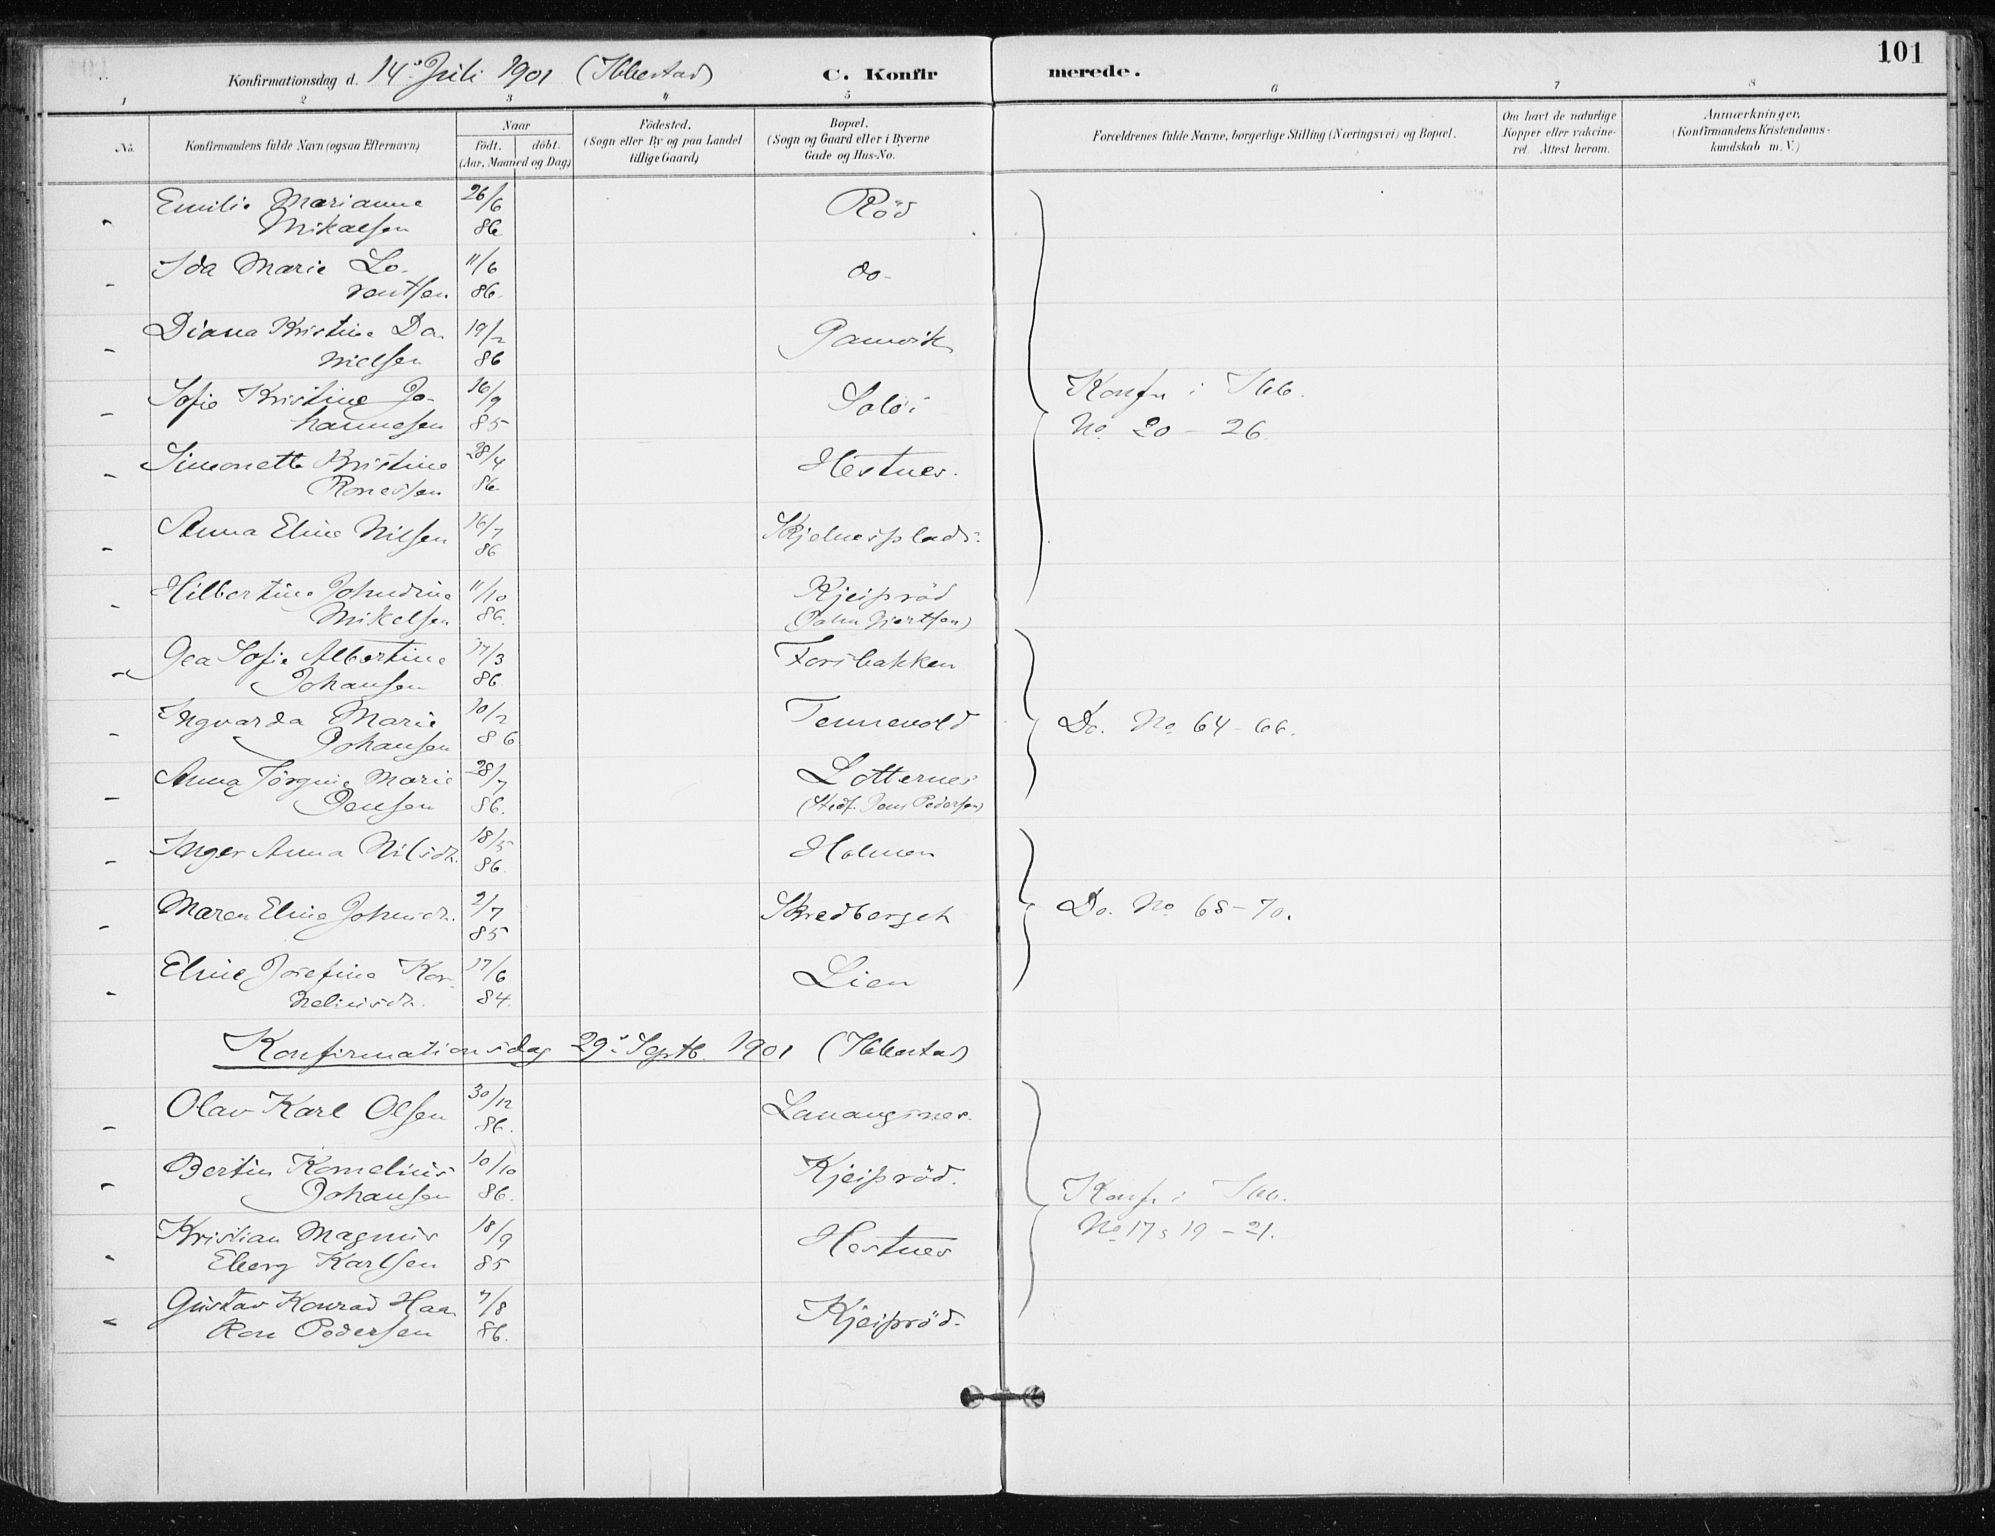 101
Konfirmationsdag d. 14' Juli 1901 (Ibbestad) C. Konfirmerede.
1 2 3 4 5 6 7 8
No.
Konfirmandens fulde Navn (ogsaa Efternavn)
Naar
Födt. döbt.
(Aar, Maaned og Dag)
Födested.
(Sogn eller By og paa Landet
tillige Gaard)
Bopæl.
(Sogn og Gaard eller i Byerne
Gade og Hus-No.
Forældrenes fulde Navne, borgerlige Stilling (Næringsvei) og Bopæl.
Om havt de naturlige
Kopper eller vakcine-
ret. Attest herom.
Anmærkninger.
(Konfirmandens Kristendoms-
kundskab m. V.)
Emilie Marianne 26/6 Röd
Mikalsen 86
Ida Marie Lo- 11/6 do-
rentsen 86.
Diana Kristine Da- 19/2 Gamvik
nielsen 86
Sofie Kristine Jo- 16/9 Salöi
hannesen 85
Konfr i Ibb.
No. 20 - 26.
Simonette Kristine 28/4 Hestnes.
Ronessen 86
Anna Eline Nilsen 16/7 Skjelnesplads.
86
Hilbertine Johndine 11/10 Kjeipröd
Mikelsen 86. (John Hjertsen)
Gea Sofie Albertine 17/3 Forsbakken
Johansen 86
Ingvarda Marie 10/2 Tennevold
Johansen 86
Do. No 64 - 66.
Anna Jörgine Marie 28/7 Lotternes
Jensen 86. (Stedf. Jens Pedersen)
Inger Anna Nilsdr. 18/5 Holmen
86.
Maren Eline Johnsdr. 2/7 Skredberget
85
Do. No 68-70.
Eline Josefine Kor- 17/6 Lien
neliusdr. 84.
Konfirmationsdag 29' Septb. 1901 (Ibbestad)
Olav Karl Olsen 30/12 Lavangsnes.
86.
Bertin Kornelius 10/10 Kjeipröd.
Johansen 86.
Konfr i Ibb.
No 17, 19 - 21.
Kristian Magnus 18/9 Hestnes
Eberg Karlsen 85
Gustav Konrad Haa- 7/8 Kjeipröd.
kon Pedersen 86.